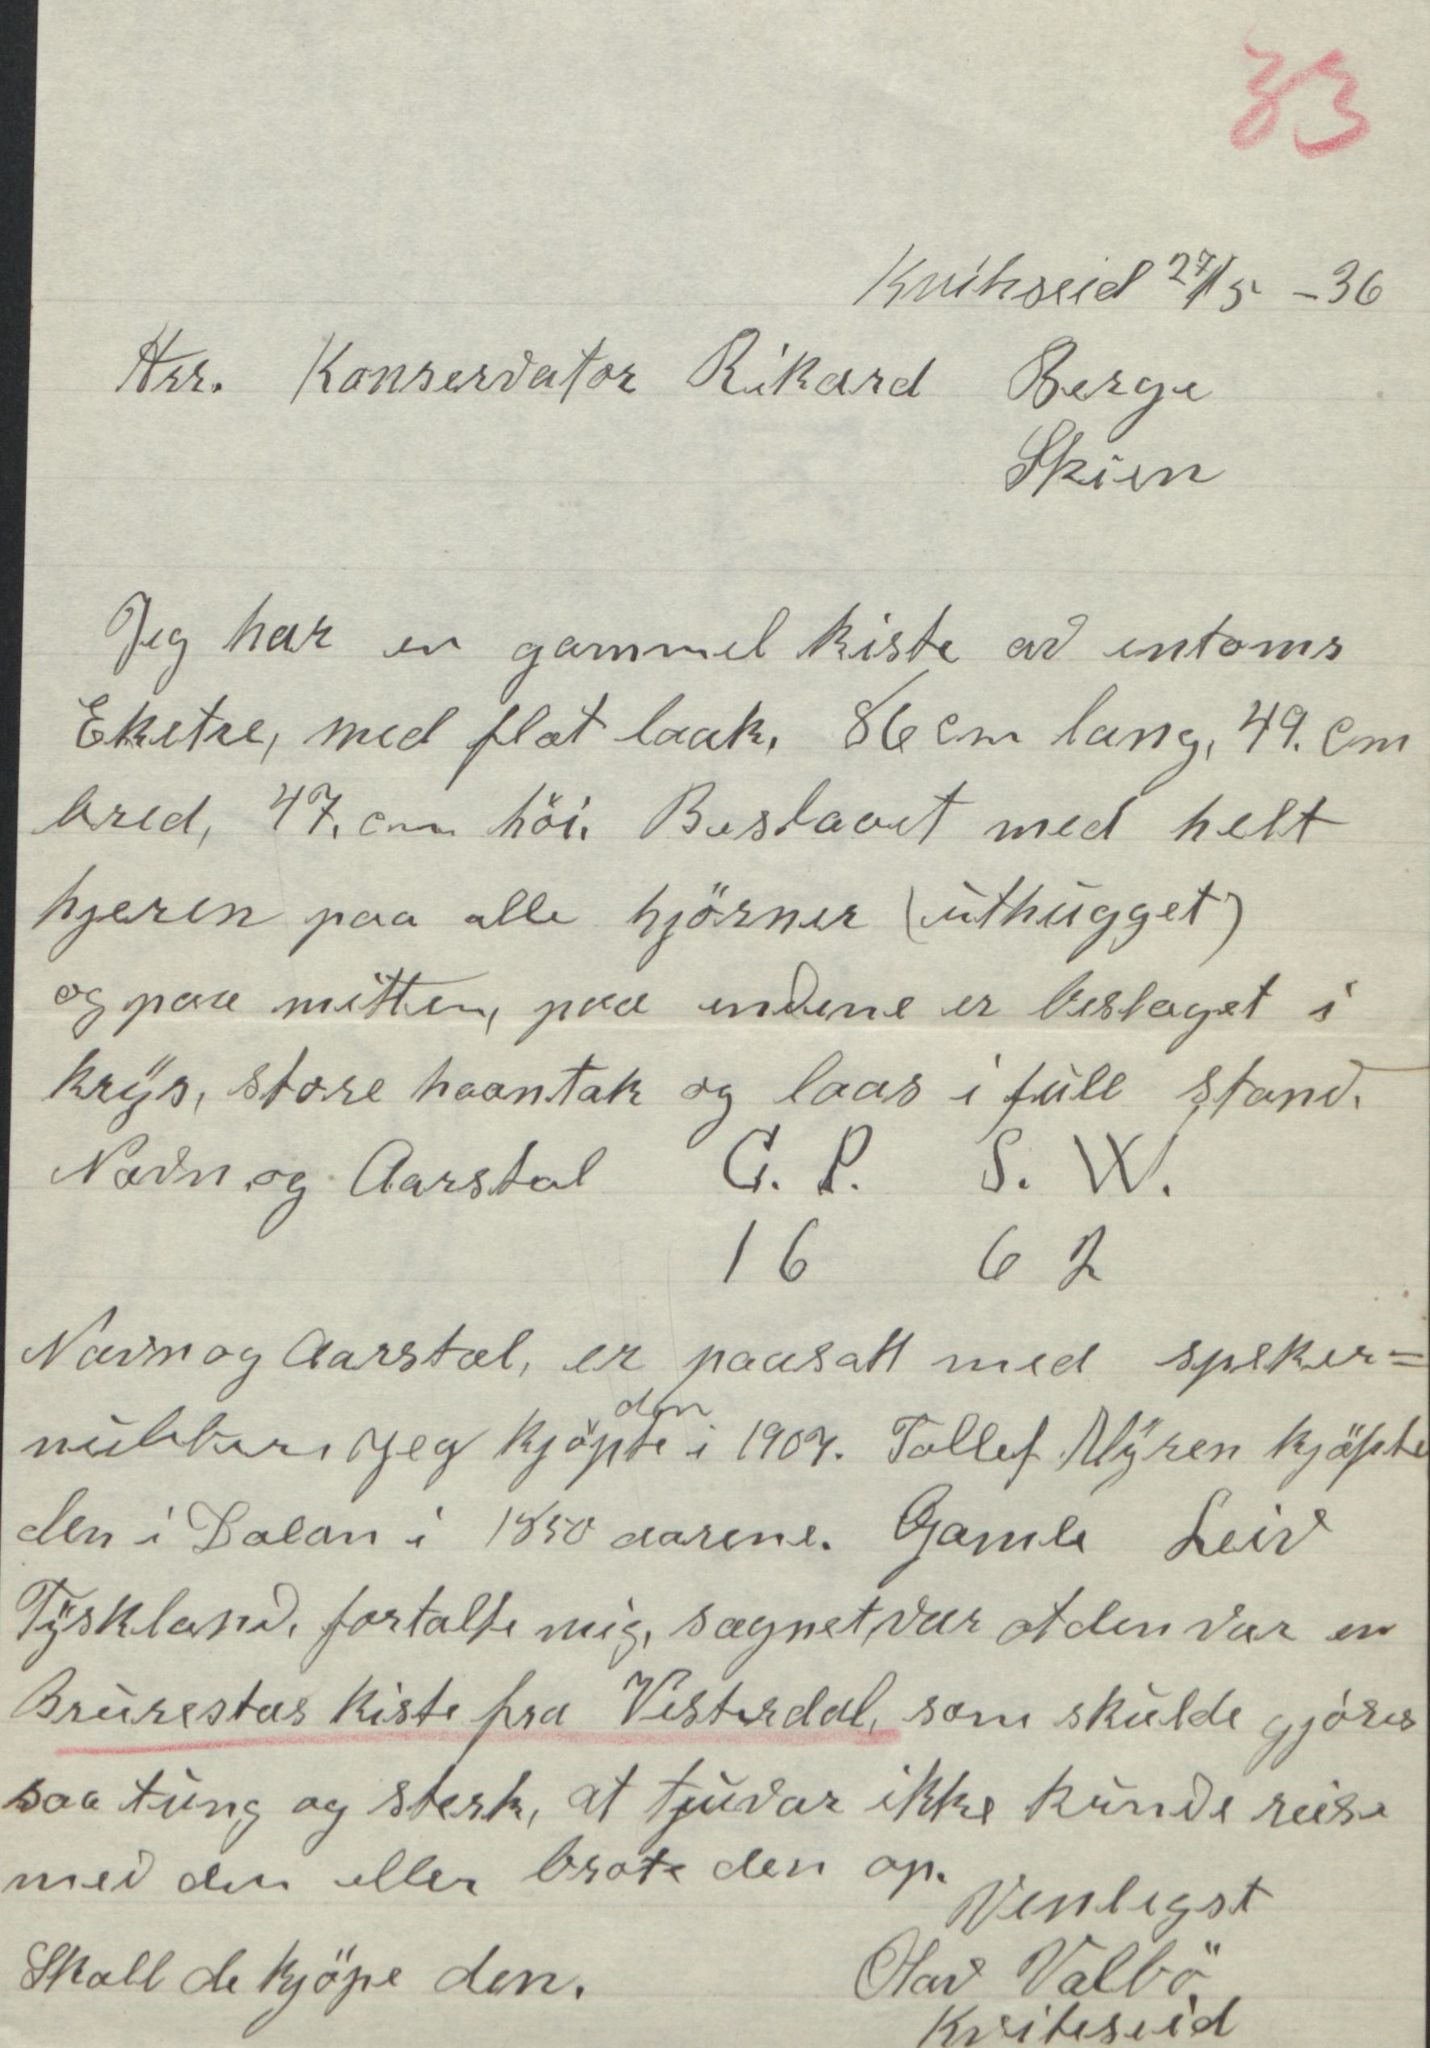 33
Kvitseid 27/5 -36
Hrr. Konservator Rikard Berge
Skien
Jeg har en gammel kiste av entoms
Eketre, med flat laak. 86 cm lang, 49. cm
bred, 47. cm höi. Beslaaet med helt
hjeren paa alle hjörner (uthugget)
og paa mitten, paa endene er beslaget i
krys, store haantak og laas i full stand.
Navn og Aarstal G. P. S. W.
16 62
Navn og Aarstal, er paasatt med speker=
nubber. Jeg kjöpte den i 1907. Tollef Myren kjöpte
den i Dalan i 1850 aarene. Gamle Leiv
Tyskland, fortalte mig, sagnet, var at den var en
Brurestas kiste fra Vesterdal, som skulde gjöres
saa tung og sterk, at tjuvar ikke kunde reise
med den eller brote den op.
Venligst
Skall de kjöpe den. Olav Valbö
Kviteseid